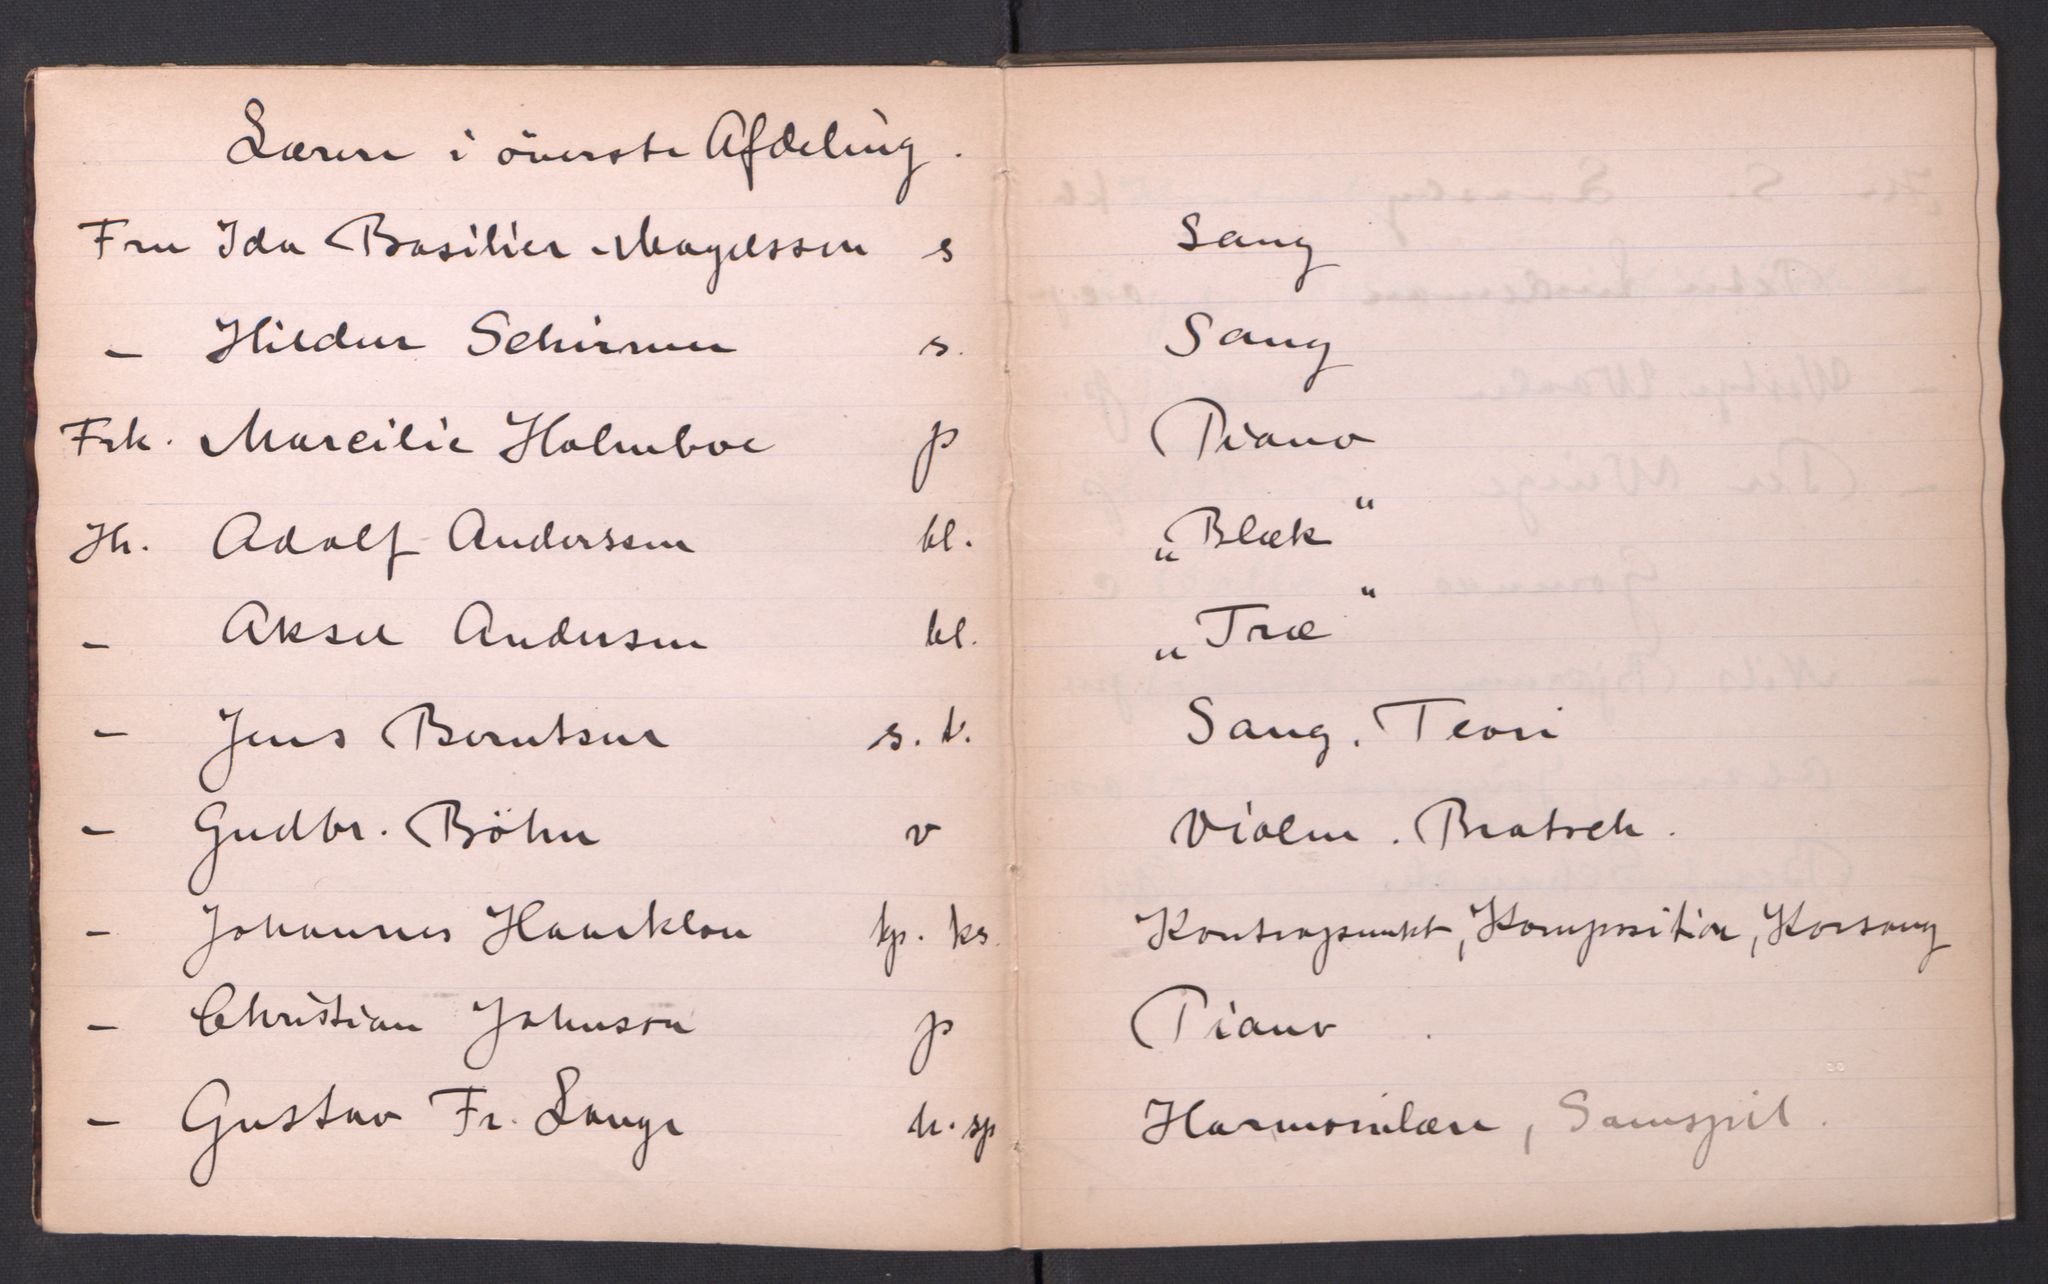 Lærere i överste Afdeling.
Fru Ida Basilier-Magelssen s Sang
– Hildur Schirmer s. Sang
Frk. Marcilie Holmboe p Piano
Hr. Adolf Anderssen bl. „Blæk“
– Aksel Andersen bl. „Træ“
– Jens Berntsen s. t. Sang. Teori
– Gudbr. Böhn v Violin. Bratsch.
– Johannes Haarklou kp. ks. Kontrapunkt, Komposition, Korsang
– Christian Johnson p Piano.
– Gustav Fr. Lange h. sp Harmonilære, Samspil.